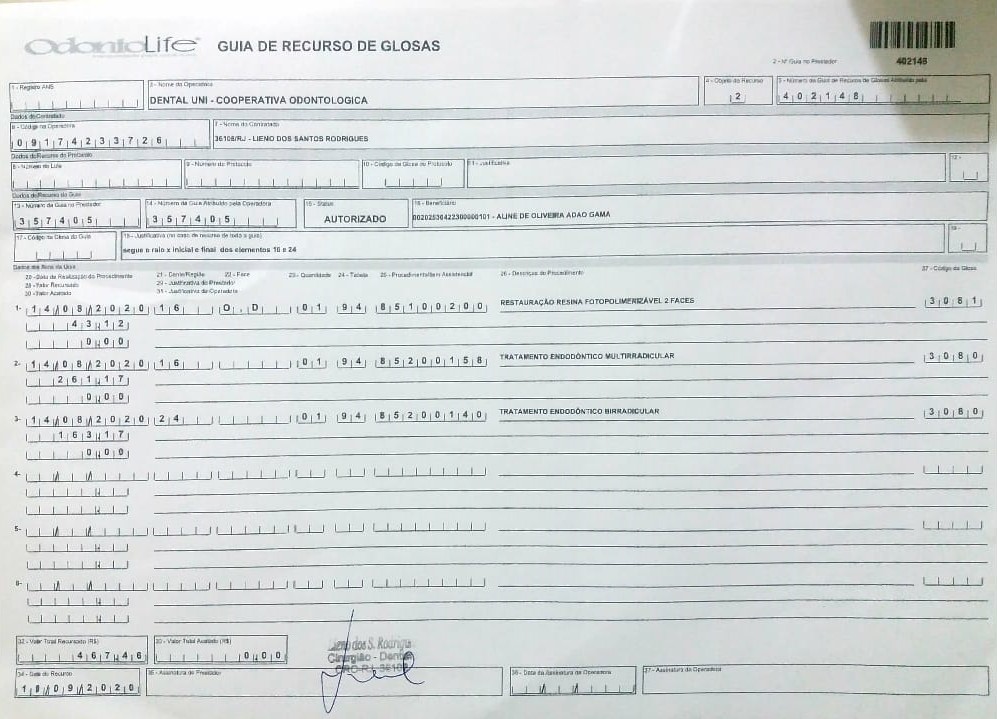 OdontoLife GUIA DE RECURSO DE GLOSAS
2 - Nº Guia no Prestador 402148
1 - Registro ANS
3 - Nome da Operadora
DENTAL UNI - COOPERATIVA ODONTOLOGICA
4 - Objeto do Recurso
2
5 - Número da Guia de Recurso de Glosas Atribuído pela
402148
Dados do Contratado
6 - Código na Operadora
09174233726
7 - Nome do Contratado
36108/RJ - LIENO DOS SANTOS RODRIGUES
Dados do Recurso do Protocolo
8 - Número do Lote
9 - Número do Protocolo
10 - Código da Glosa do Protocolo
11 - Justificativa
12 -
Dados do Recurso da Guia
13 - Número da Guia no Prestador
357405
14 - Número da Guia Atribuído pela Operadora
357405
15 - Status
AUTORIZADO
16 - Beneficiário
00202530422300000101 - ALINE DE OLIVEIRA ADAO GAMA
17 - Código da Glosa da Guia
18 - Justificativa (no caso de recurso de toda a guia)
segue o raio x inicial e final dos elementos 16 e 24
19 -
Dados dos Itens da Guia
20 - Data de Realização do Procedimento 21 - Dente/Região 22 - Face 23 - Quantidade 24 - Tabela 25 - Procedimento/Item Assistencial 26 - Descrição do Procedimento 27 - Código da Glosa
28 - Valor Recursado 29 - Justificativa do Prestador
30 - Valor Acatado 31 - Justificativa da Operadora
1- 14/08/2020 16 O,D 01 94 85100200 RESTAURAÇÃO RESINA FOTOPOLIMERIZÁVEL 2 FACES 3081
43,12
0,00
2- 14/08/2020 16 01 94 85200158 TRATAMENTO ENDODÔNTICO MULTIRRADICULAR 3080
261,17
0,00
3- 14/08/2020 24 01 94 85200140 TRATAMENTO ENDODÔNTICO BIRRADICULAR 3080
163,17
0,00
4-
5-
6-
32 - Valor Total Recursado (R$)
467,46
33 - Valor Total Acatado (R$)
0,00
Lieno dos S. Rodrigues
Cirurgião - Dentista
CRO-RJ 36108
34 - Data do Recurso
18/09/2020
35 - Assinatura do Prestador
36 - Data da Assinatura da Operadora
37 - Assinatura da Operadora